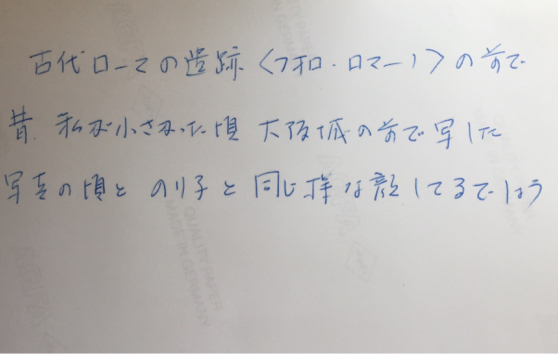 古代ローマの遺跡〈フォロ・ロマーノ〉の前で
昔、私が小さかった頃 大阪城の前で写した
写真の頃と のり子と 同じ様な顔してるでしょう
QUALITY PAPER
MADE IN GERMANY